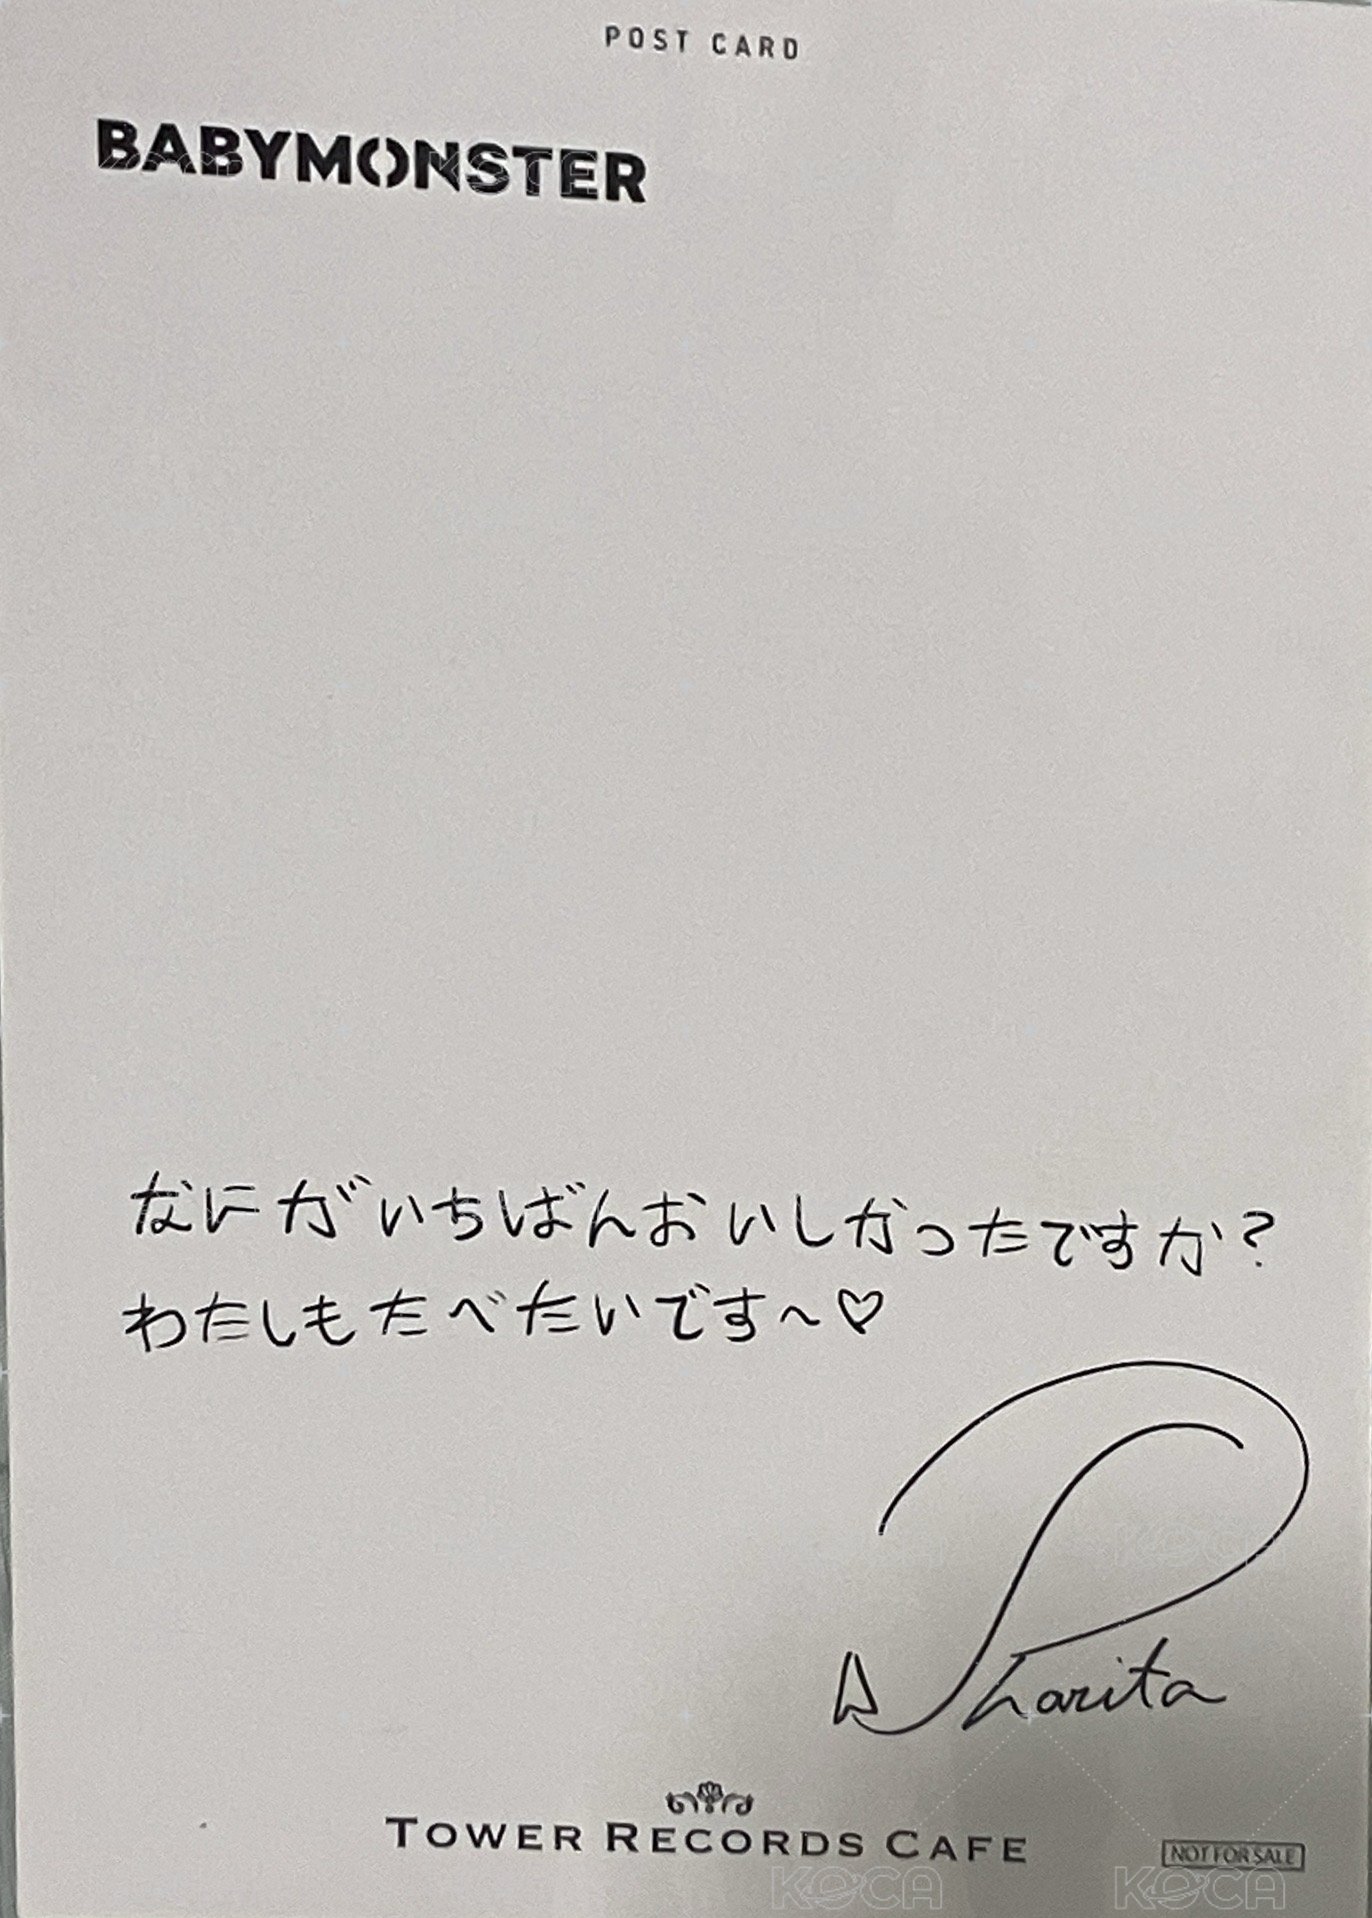 POST CARD
BABYMONSTER
なにがいちばんおいしかったですか?
わたしもたべたいです〜♡
Pharita
TOWER RECORDS CAFE
NOT FOR SALE
KOCA KOCA